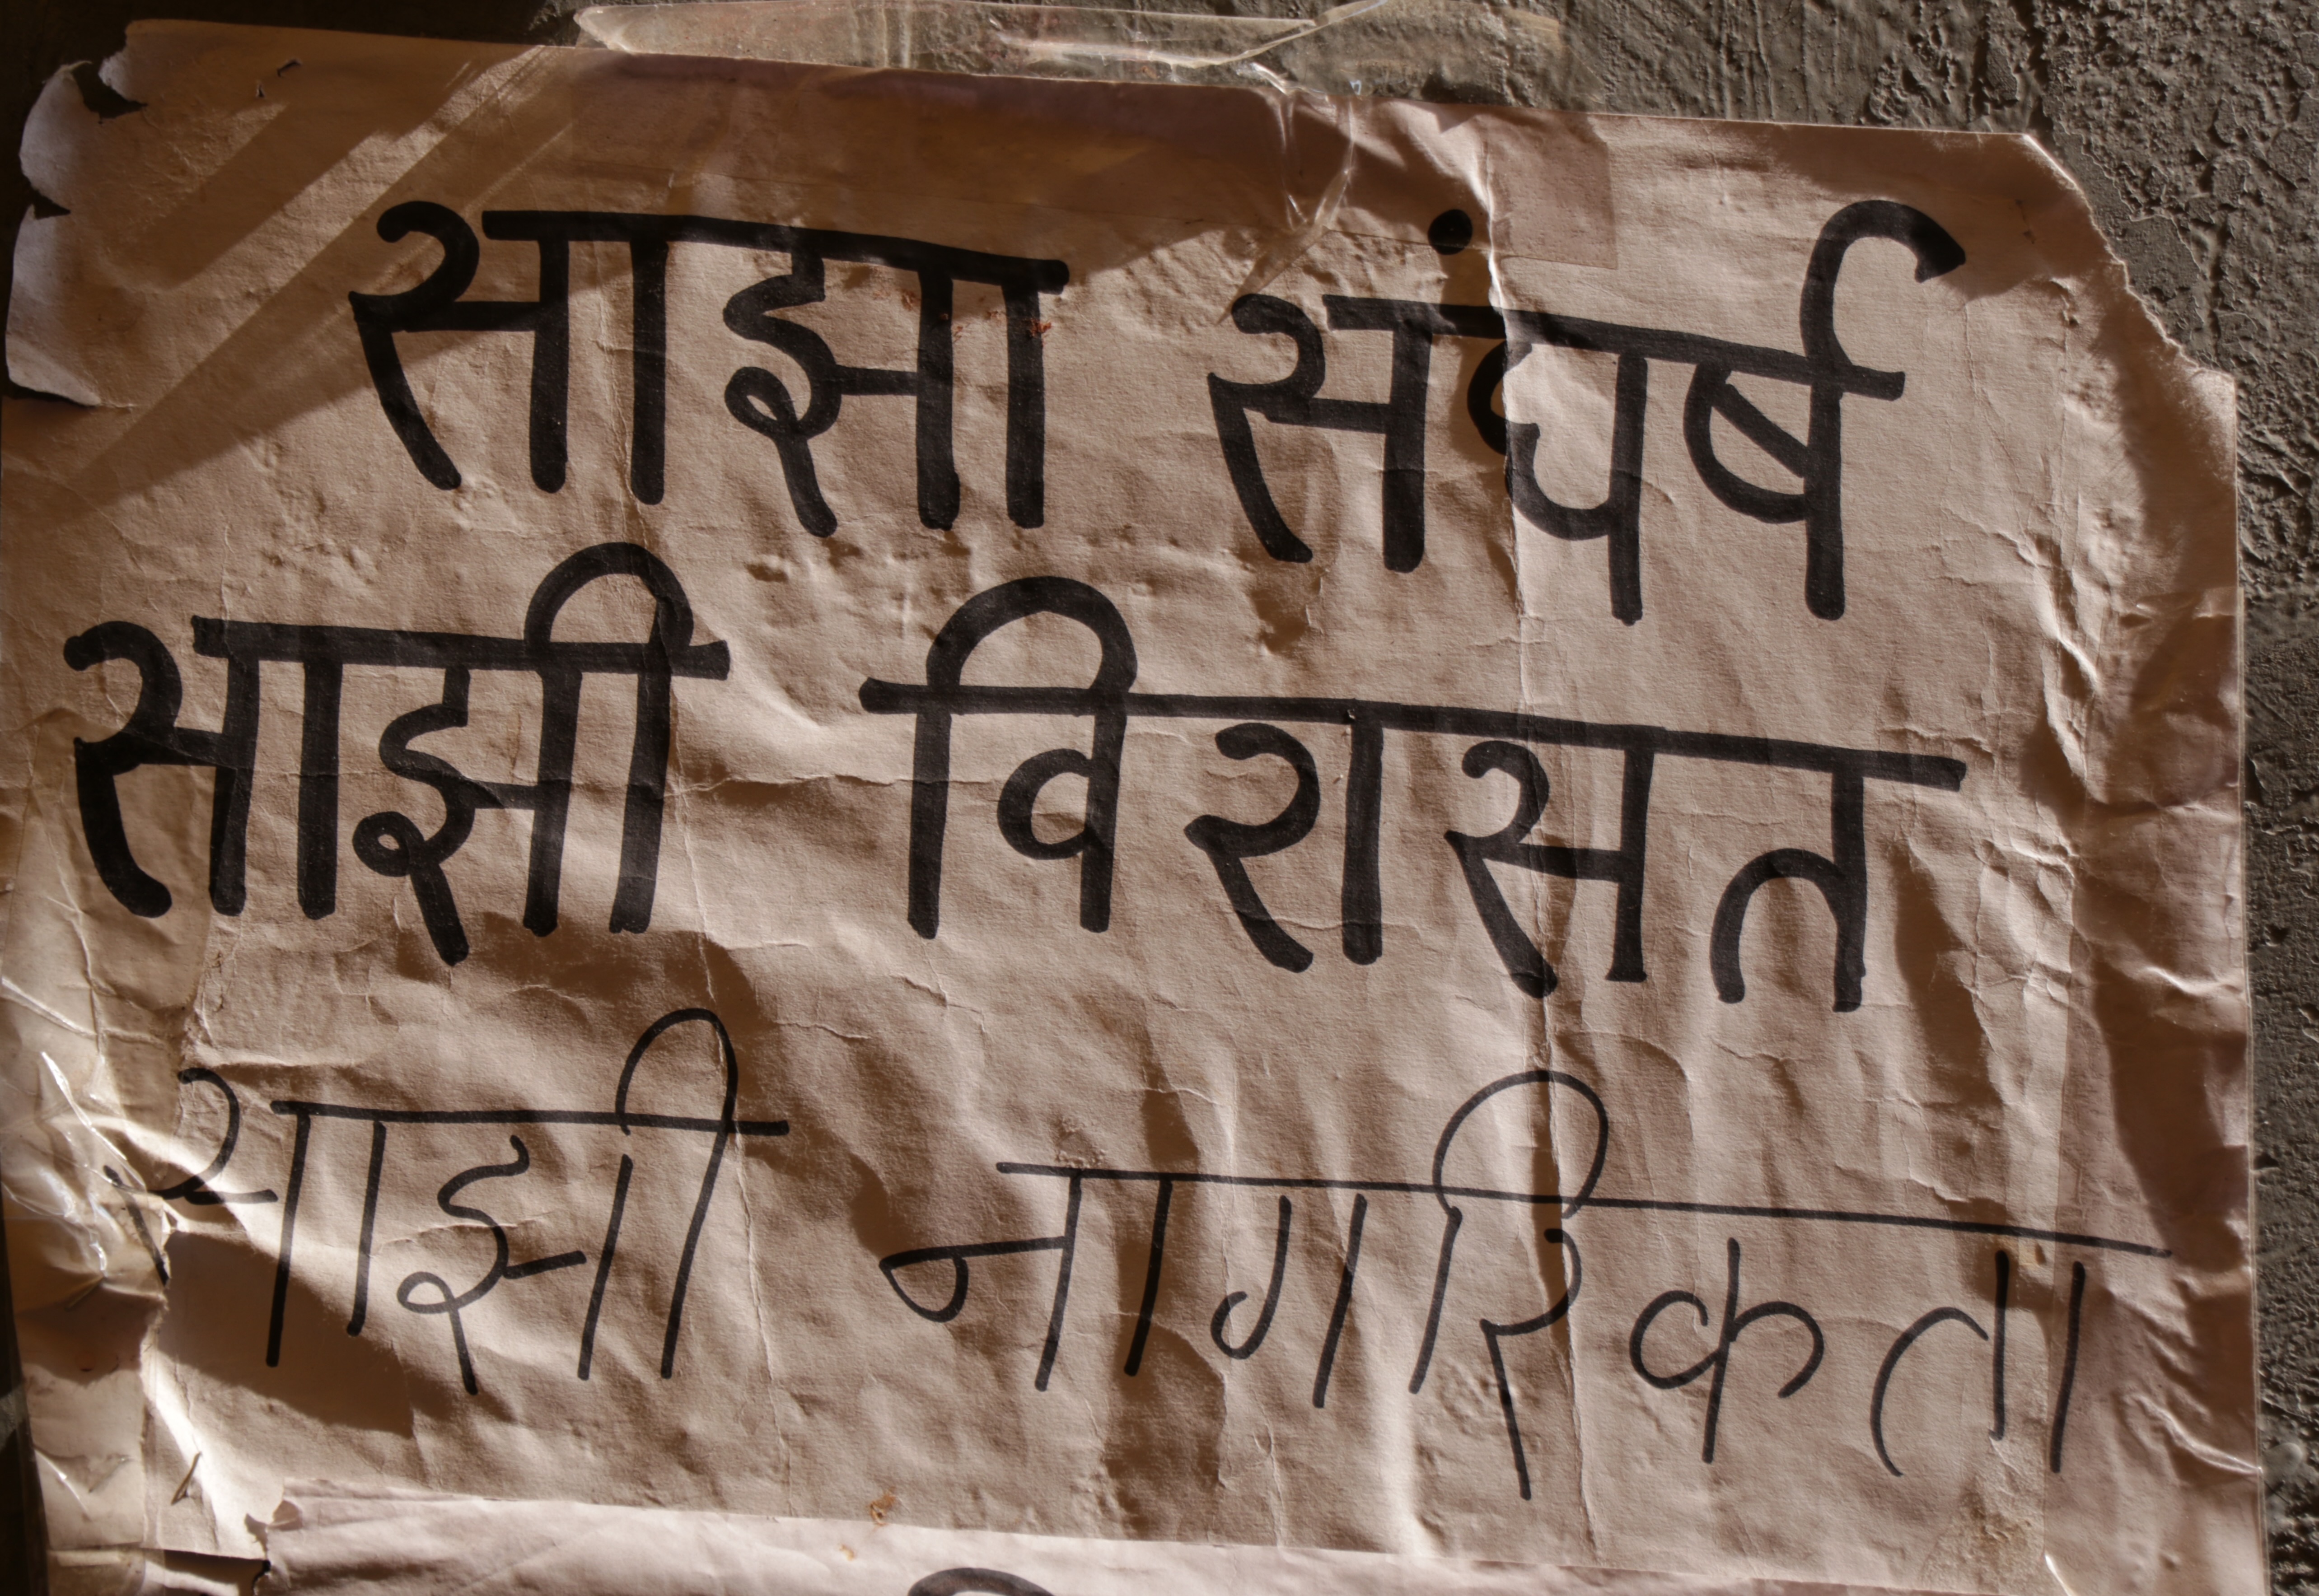 साझा संघर्ष
साझी विरासत
साझी नागरिकता